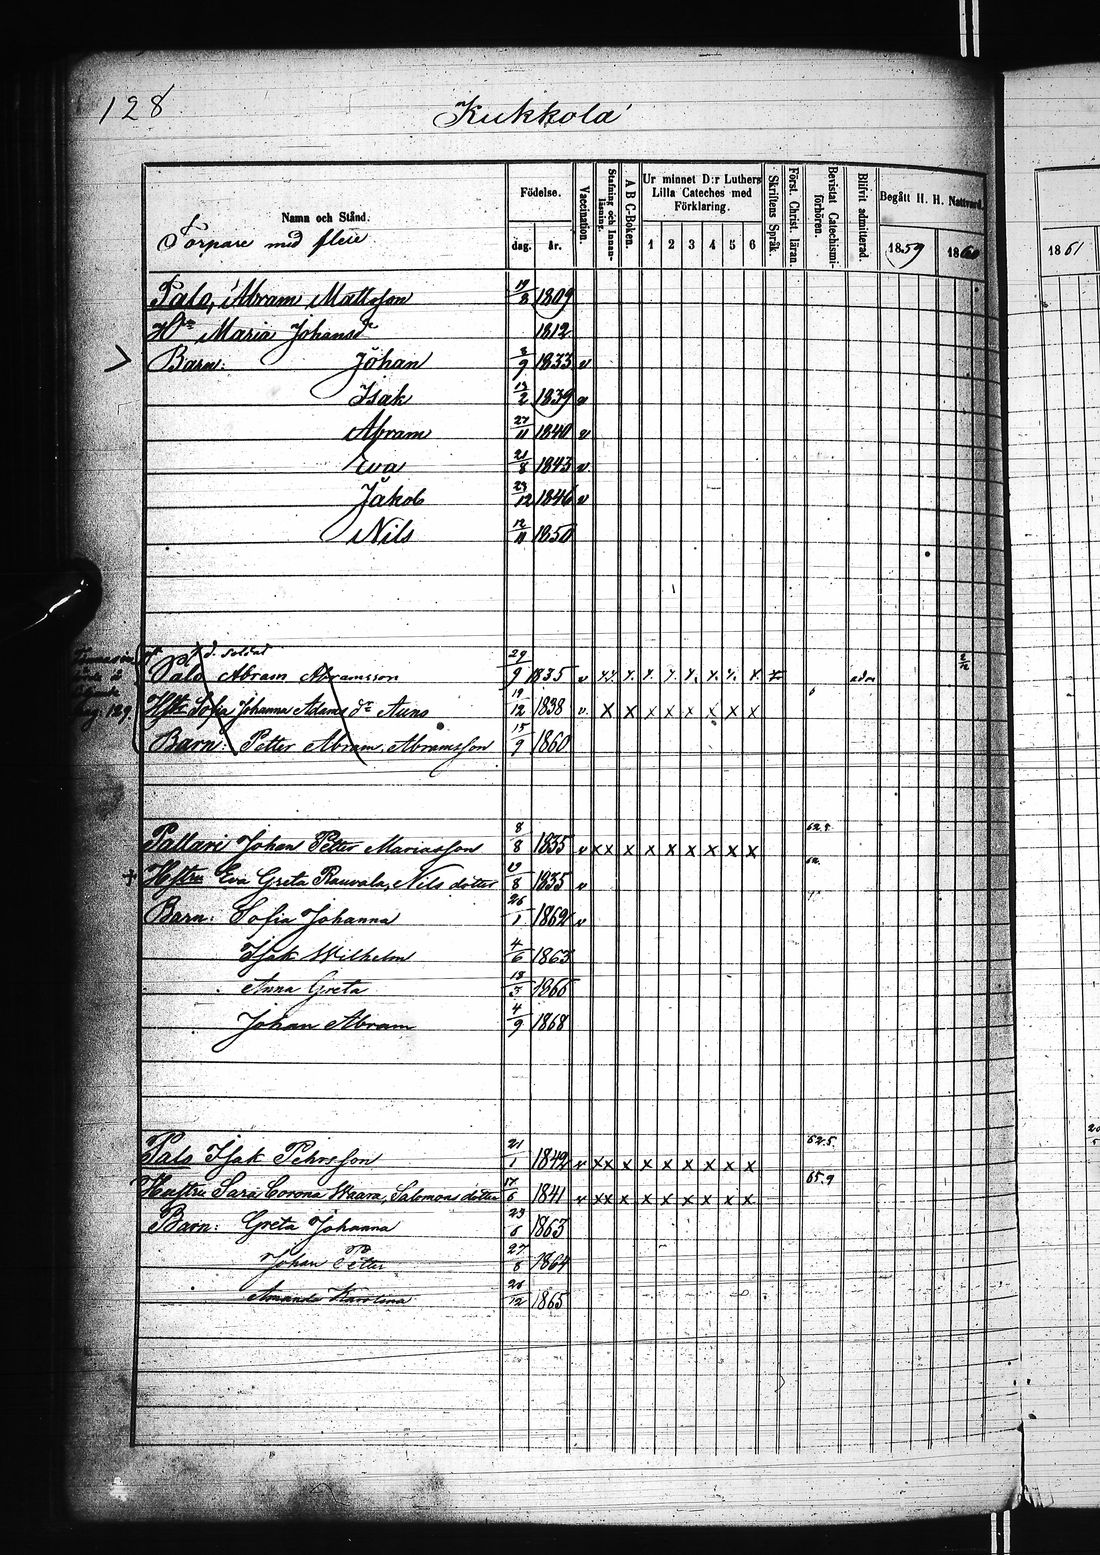 128
Kukkola
Namn och Stånd.
Torpare med flere
Födelse.
dag.
år.
Vaccination.
Stafning och Innanläsning.
A B C-Boken.
Ur minnet D:r Luthers Lilla Cateches med Förklaring.
1 2 3 4 5 6
Skriftens Språk.
Först. Christ. läran.
Bevistat Catechismiförhören.
Blifvit admitterad.
Begått H. H. Nattvard.
1859 1860
1861
Palo, Abram Mattsson 19/8 1809
Hu Maria Johansdr 1812
Barn: Johan 3/9 1833 v
Isak 13/2 1839 v
Abram 27/11 1840 v
Eva 21/8 1843 v
Jakob 23/12 1846 v
Nils 12/11 1850
d. Soldat
Palo Abram Abramsson 29/9 1835 v
Hstr Sofia Johanna Adams dr Auno 19/12 1838 v. x x x x x x x x
Barn: Petter Abram Abramsson 15/9 1860
62.5
Pallari Johan Petter Mariasson 8/8 1835 v xx x x x x x x x
62.
Hustru Eva Greta Rauvala, Nils dotter 19/8 1835 v
Barn: Sofia Johanna 26/1 1862 v
Isak Wilhelm 4/6 1863
Anna Greta 18/3 1866
Johan Abram 4/9 1868
62.5
Palo Isak Pehrsson 21/1 1842 v xx x x x x x x x
65.9
Hustru Sara Corona Waara, Salomons dotter 17/6 1841 v xxx x x x x x x x
Barn: Greta Johanna 23/6 1863
Johan Petter 27/8 1864
Amanda Karolina 26/12 1865